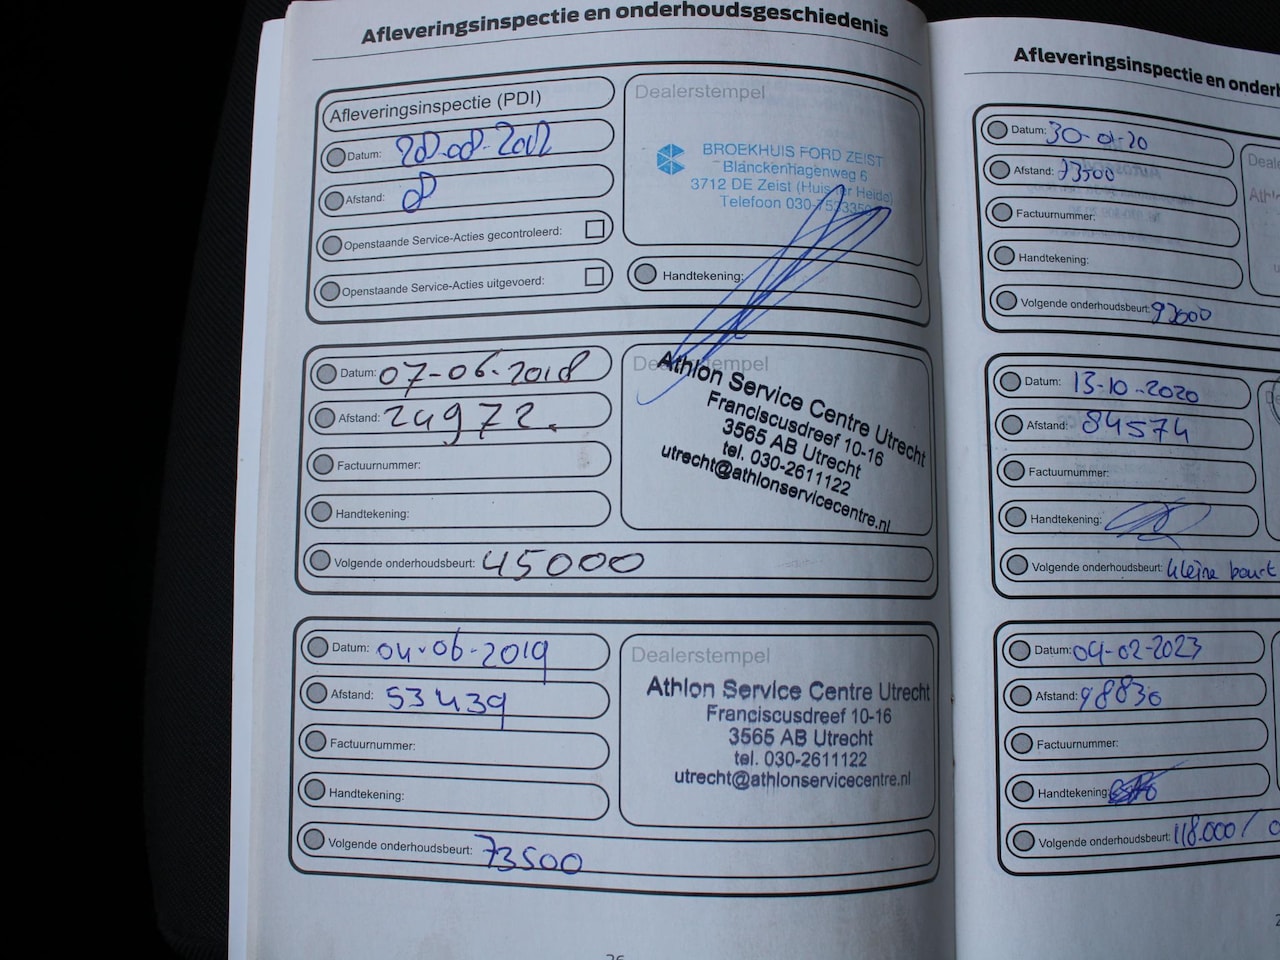 Afleveringsinspectie en onderhoudsgeschiedenis
Afleveringsinspectie (PDI)
Datum:
Afstand: 8
Openstaande Service-Acties gecontroleerd:
Openstaande Service-Acties uitgevoerd:
Dealerstempel
BROEKHUIS FORD ZEIST
Blanckenhagenweg 6
3712 DE Zeist (Huis ter Heide)
Telefoon
Handtekening:
Datum: 07-06-2018
Afstand: 24972.
Factuurnummer:
Handtekening:
Volgende onderhoudsbeurt: 45000
Dealerstempel
Athlon Service Centre Utrecht
Franciscusdreef 10-16
3565 AB Utrecht
tel. 030-2611122
utrecht@athlonservicecentre.nl
Datum: 04-06-2019
Afstand: 53439
Factuurnummer:
Handtekening:
Volgende onderhoudsbeurt: 73500
Dealerstempel
Athlon Service Centre Utrecht
Franciscusdreef 10-16
3565 AB Utrecht
tel. 030-2611122
utrecht@athlonservicecentre.nl
Afleveringsinspectie en onderh
Datum: 30-01-20
Afstand: 73500
Factuurnummer:
Handtekening:
Volgende onderhoudsbeurt: 93500
Datum: 13-10-2020
Afstand: 84574
Factuurnummer:
Handtekening:
Volgende onderhoudsbeurt: kleine beurt
Datum: 09-02-2023
Afstand: 98836
Factuurnummer:
Handtekening:
Volgende onderhoudsbeurt: 118.000 /